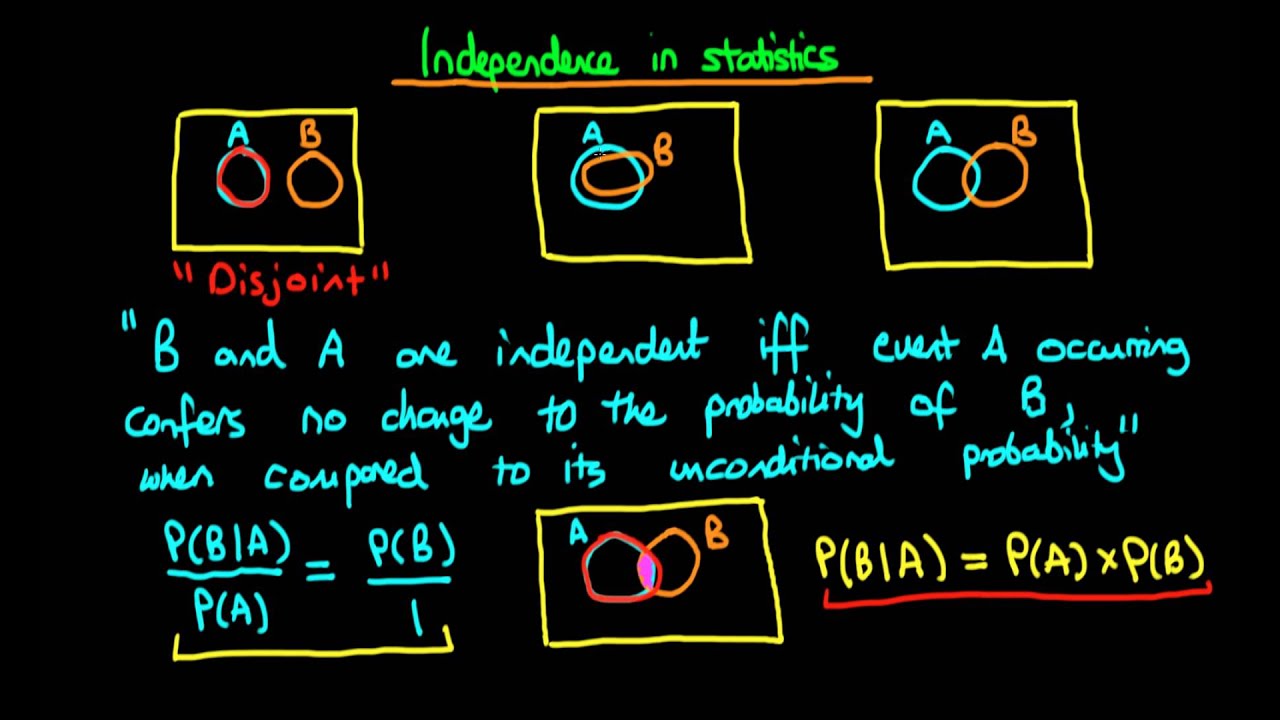 Independence in statistics
A B
A B
A B
"Disjoint"
"B and A are independent iff event A occurring
confers no change to the probability of B,
when compared to its unconditional probability"
P(B|A) / P(A) = P(B) / 1
A B
P(B|A) = P(A) × P(B)